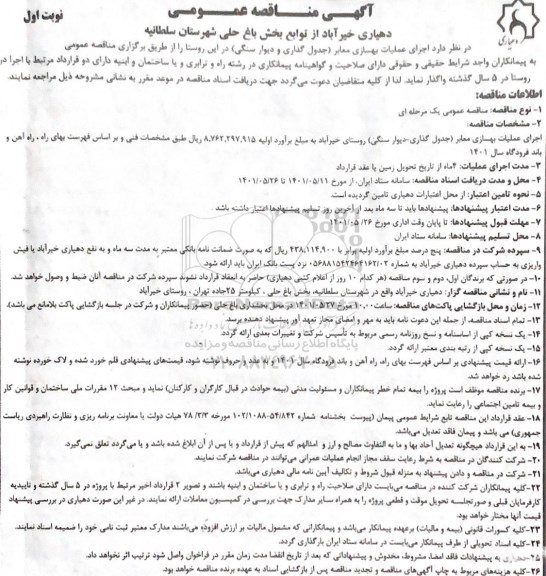 آگهی مناقصه عمومی
نوبت اول
دهیاری خیرآباد از توابع بخش باغ حلی شهرستان سلطانیه
دهیاری
در نظر دارد اجرای عملیات بهسازی معابر (جدول گذاری و دیوار سنگی) در این روستا را از طریق برگزاری مناقصه عمومی
به پیمانکاران واجد شرایط حقیقی و حقوقی دارای صلاحیت و گواهینامه پیمانکاری در رشته راه و ترابری و یا ساختمان و ابنیه دارای دو قرارداد مرتبط با اجرا در
روستا در ۵ سال گذشته واگذار نماید. لذا از کلیه متقاضیان دعوت می‌گردد جهت دریافت اسناد مناقصه در موعد مقرر به نشانی مشروحه ذیل مراجعه نمایند.
اطلاعات مناقصه:
۱- نوع مناقصه: مناقصه عمومی یک مرحله ای
۲- مشخصات مناقصه:
اجرای عملیات بهسازی معابر (جدول گذاری-دیوار سنگی) روستای خیرآباد به مبلغ برآورد اولیه ۸,۷۶۲,۲۹۷,۹۱۵ ریال طبق مشخصات فنی و بر اساس فهرست بهای راه، راه آهن و
باند فرودگاه سال ۱۴۰۱
۳- مدت اجرای عملیات: ۴ماه از تاریخ تحویل زمین یا عقد قرارداد
۴- محل و مدت دریافت اسناد مناقصه: سامانه ستاد ایران، از مورخ ۱۴۰۱/۰۵/۱۱ تا ۱۴۰۱/۰۵/۲۶
۵- نحوه تامین اعتبار: از محل اعتبارات دهیاری تامین گردیده است.
۶- مدت اعتبار پیشنهادها: پیشنهادها باید تا سه ماه بعد از آخرین روز تسلیم پیشنهادها اعتبار داشته باشد
۷- مهلت قبول پیشنهادها: تا پایان وقت اداری مورخ ۱۴۰۱/۰۵/۲۶
۸- محل تسلیم پیشنهادها: سامانه ستاد ایران
۹- سپرده شرکت در مناقصه: پنج درصد مبلغ برآورد اولیه برابر با ۴۳۸,۱۱۴,۹۰۰ ریال که به صورت ضمانت نامه بانکی معتبر به مدت سه ماه و به نفع دهیاری خیرآباد یا فیش
واریزی به حساب سپرده دهیاری خیرآباد به شماره نزد پست بانک ایران باید ارائه شود.
۱۰- در صورتی که برندگان اول، دوم و سوم مناقصه (هر کدام ۱۰ روز از اعلام کتبی دهیاری) حاضر به انعقاد قرارداد نشوند سپرده شرکت در مناقصه آنان ضبط و وصول خواهد شد.
۱۱- نام و نشانی مناقصه گزار: دهیاری خیرآباد واقع در شهرستان سلطانیه، بخش باغ حلی ، کیلومتر ۲۵جاده تهران ، روستای خیرآباد
۱۲- زمان و محل بازگشایی پاکت‌های مناقصه: ساعت ۱۰:۰۰ مورخ ۱۴۰۱/۰۵/۲۷ در محل بخشداری باغ حلی (حضور پیمانکاران و شرکت در جلسه بازگشایی پاکت بلامانع می باشد).
۱۳- تمام اسناد مناقصه، از جمله این دعوت نامه باید به مهر و امضای مجاز تعهد آور پیشنهاد دهنده برسد.
۱۴- یک نسخه کپی از اساسنامه و نسخ روزنامه رسمی مربوط به تأسیس شرکت و تغییرات بعدی ارائه گردد.
۱۵- یک نسخه کپی از رتبه بندی معتبر ارائه گردد.
۱۶- ارائه قیمت پیشنهادی بر اساس فهرست بهای راه، راه آهن و باند فرودگاه سال ۱۴۰۱، به عدد و حروف نوشته شود، قیمت‌های پیشنهادی قلم خورده شده و لاک خورده نوشته
شده باشد رد خواهد شد.
۱۷- برنده مناقصه موظف است پروژه را بیمه تمام خطر پیمانکاران و مسئولیت مدنی (بیمه حوادث در قبال کارگران و کارکنان) نماید و مبحث ۱۲ مقررات ملی ساختمان و قوانین کار
و بیمه تامین اجتماعی را رعایت نماید.
۱۸- عقد قرارداد این مناقصه تابع شرایط عمومی پیمان (پیوست بخشنامه شماره ۱۰۲/۱۰۸۸-۵۴/۸۴۲ مورخه ۷۸/۳/۳ هیات دولت یا معاونت برنامه ریزی و نظارت راهبردی ریاست
جمهوری) می باشد و پیمان فاقد تعدیل می‌باشد.
۱۹- به این قرارداد هیچگونه تعدیل آحاد بها و ما به التفاوت مصالح و ارز و امثالهم که پیش از قرارداد و یا پس از آن ابلاغ شده باشد و یا می‌گردد تعلق نمی‌گیرد.
۲۰- شرکت کنندگان در مناقصه به شرط رعایت سقف مجاز انجام عملیات عمرانی می‌توانند در مناقصه شرکت نمایند.
۲۱- شرکت در مناقصه و دادن پیشنهاد به منزله قبول شروط و تکالیف آیین نامه مالی دهیاری می‌باشد.
۲۲- کلیه پیمانکاران شرکت کننده در مناقصه می‌بایست دارای صلاحیت راه و ترابری و یا ساختمان و ابنیه باشند و تصویر ۲ قرارداد اخیر مرتبط با پروژه در ۵ سال گذشته و تاییدیه
کارفرمایان قبلی و صورتجلسه تحویل موقت و قطعی پروژه را به همراه سایر مدارک جهت بررسی در کمیسیون معاملات ارائه نمایند. در غیر این صورت دهیاری در بررسی پیشنهاد
قیمت آنها مختار خواهد بود.
۲۳- کلیه کسورات قانونی (بیمه و مالیات) برعهده پیمانکار می‌باشد و پیمانکارانی که مشمول مالیات بر ارزش افزوده می‌باشند مدارک معتبر ثبت نامی خود را ضمیمه اسناد نمایند.
۲۴- کلیه اسناد تحویلی از طرف پیمانکار می‌بایست در سامانه ستاد ایران بارگذاری گردد.
۲۵- دهیاری به پیشنهادات فاقد امضا، مشروط، مخدوش و پیشنهاداتی که بعد از تاریخ انقضا مدت زمان مقرر در فراخوان واصل شود ترتیب اثر نخواهد داد.
۲۶- کلیه هزینه‌های مربوط به چاپ آگهی‌های مناقصه و تجدید مناقصه پس از بازگشایی اسناد به عهده برنده مناقصه خواهد بود.